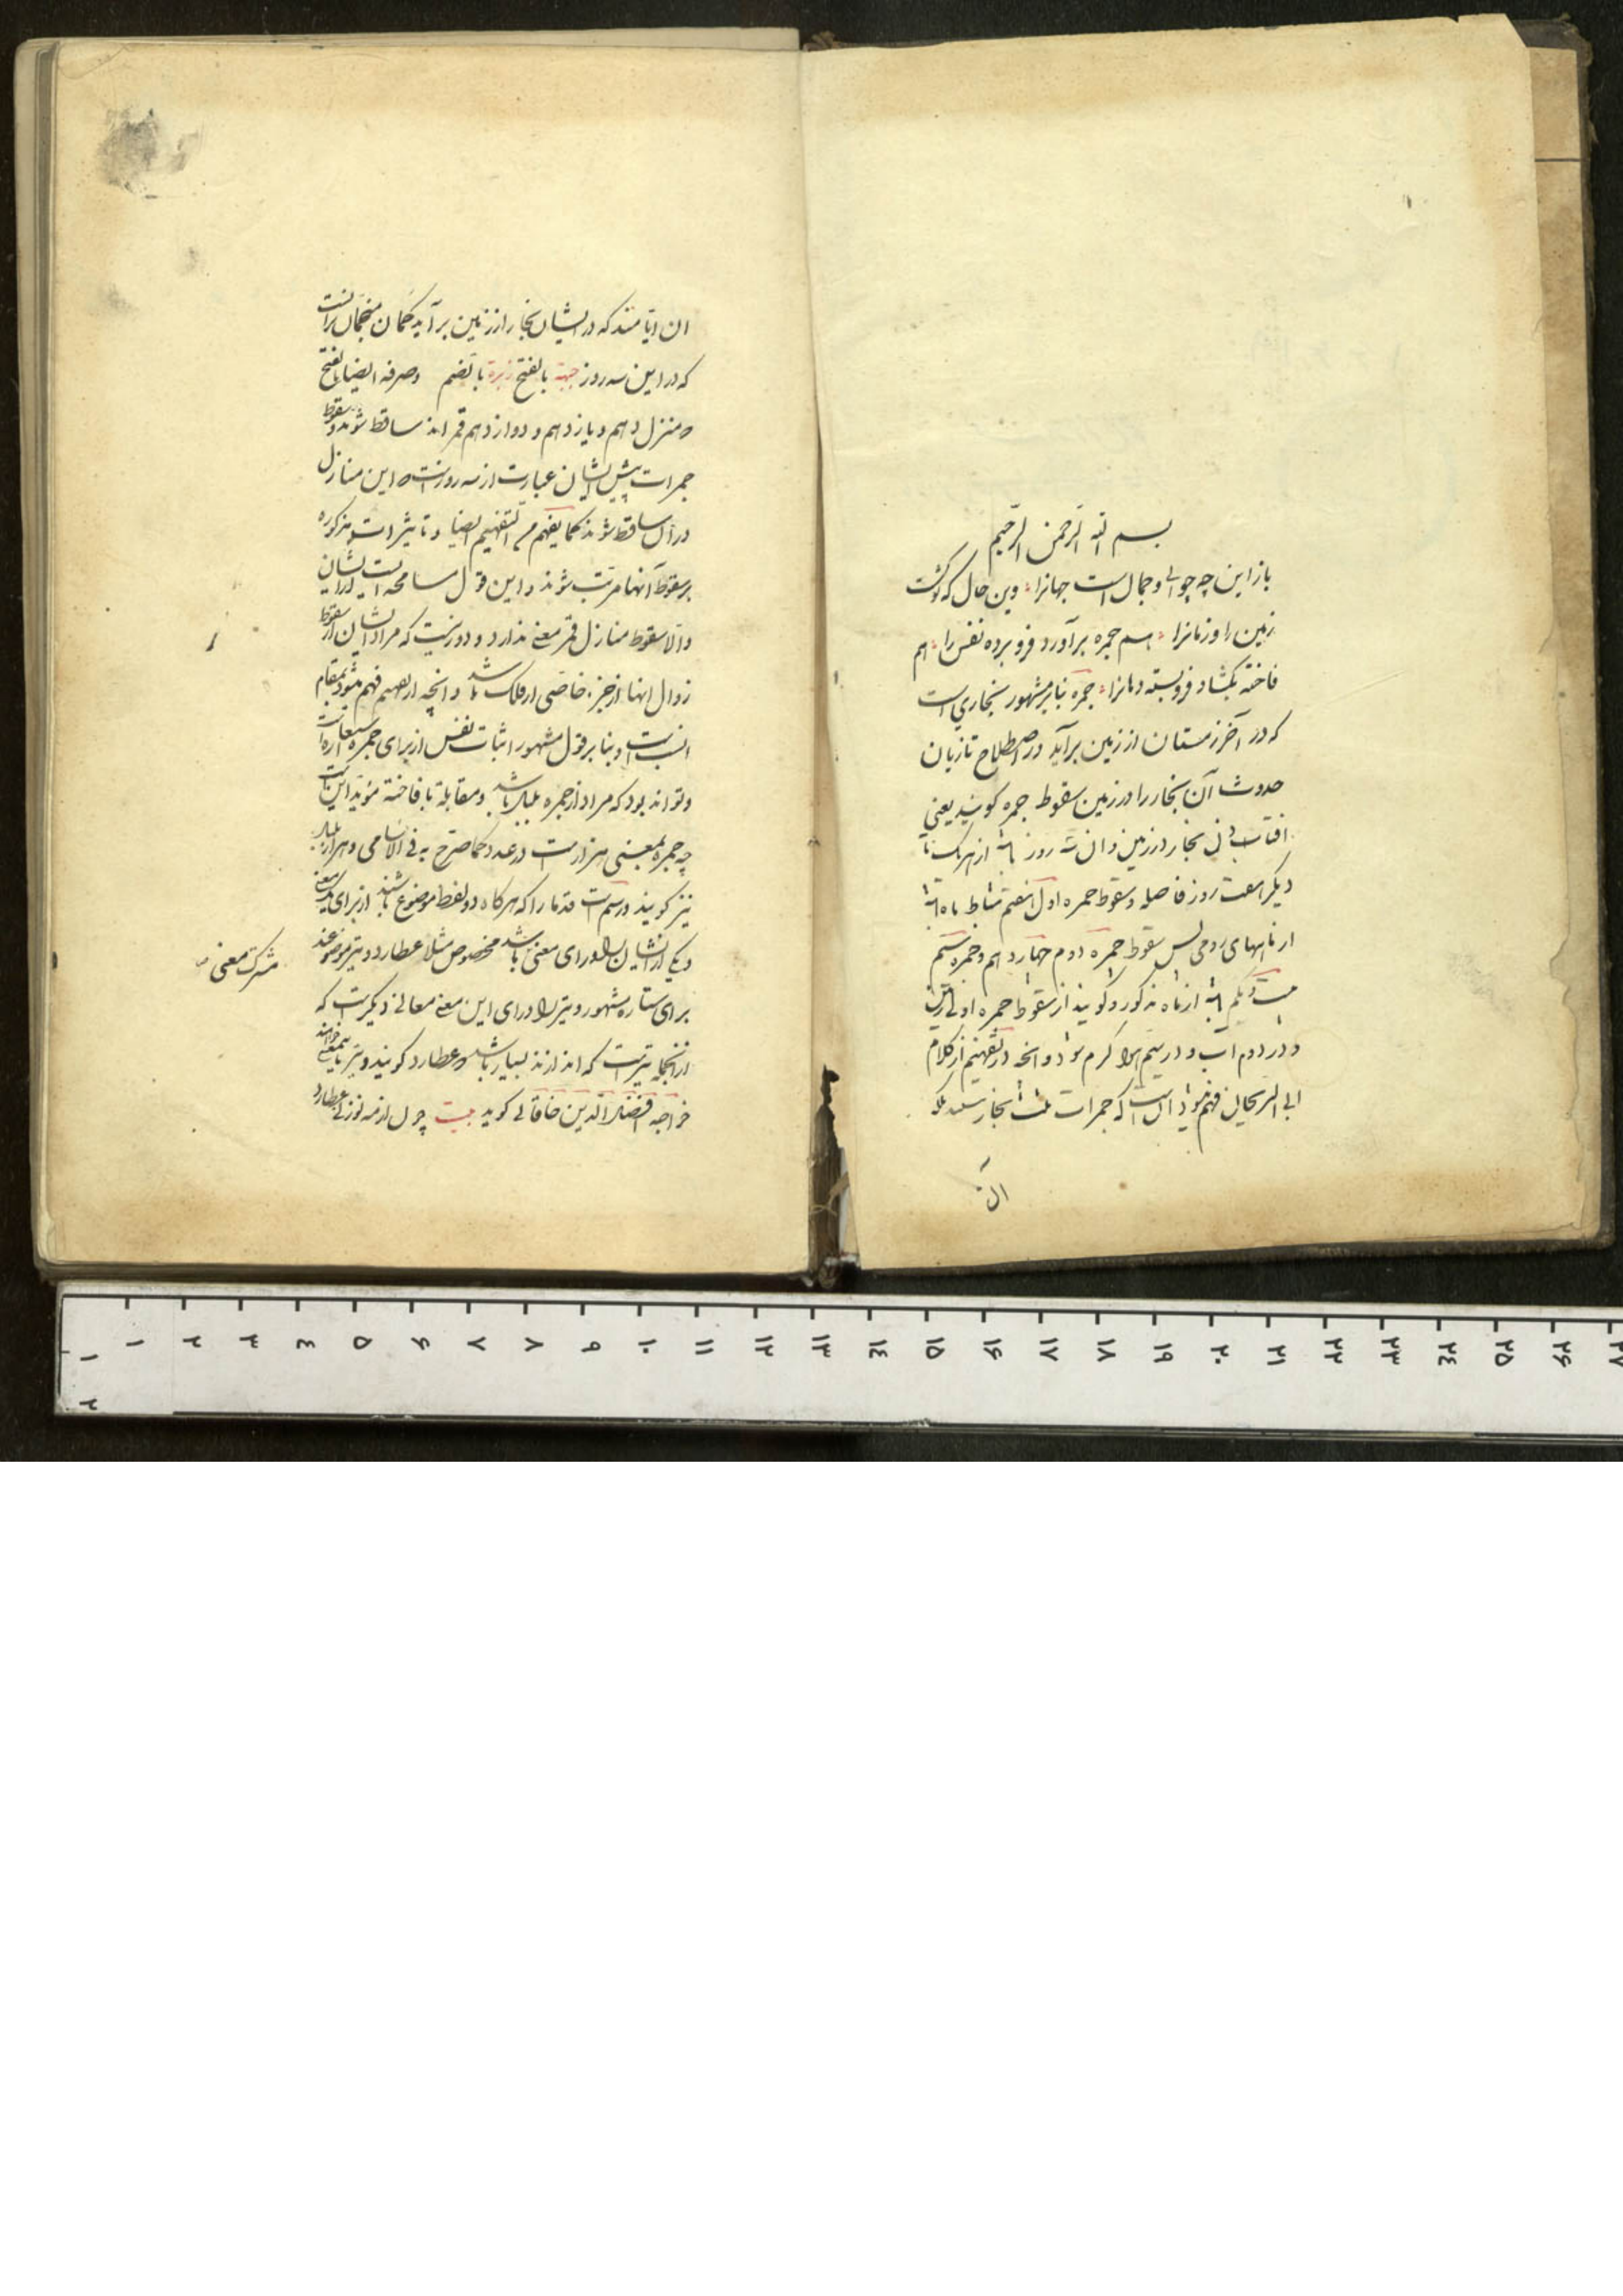 بسم الله الرحمن الرحیم
باز این چه جوانی و جمال است جهانرا وین حال که نو گشت
زمین را و زمانرا هم جمره برآورد فرو برده نفس را هم
فاخته بگشاد فروبسته دهانرا جمره بنابر مشهور بخاری است
که در آخر زمستان از زمین برآید و در اصطلاح تازیان
حدوث آن بخار را در زمین سقوط جمره گویند یعنی
افتادن بخار در زمین و آن سه روز باشد از هر یک تا
دیگر هفت روز فاصله و سقوط جمره اول هفتم شباط ماه است
از ماههای رومی پس سقوط جمره دوم چهاردهم و جمره سیم
بیست و یکم باشد از ماه مذکور و گویند از سقوط جمره اولی زمین
و در دوم آب و در سیم هوا گرم شود و آنچه در تفهیم از کلام
ابی الریحان فهم میشود آنست که جمرات ثلث بخار نیستند بلکه
ان
ان ایامند که در ایشان بخار از زمین برآید گمان منجمان برآنست
که در این سه روز جبهه بالفتح زبره بالضم و صرفه ایضا بالفتح
که منزل دهم و یازدهم و دوازدهم قمراند ساقط شوند و سقوط
جمرات پیش ایشان عبارت از سه روزیست که این منازل
در آن ساقط شوند کما یفهم من التفهیم ایضا و تاثیرات مذکوره
بر سقوط آنها مرتب شوند و این قول مسامحه است از ایشان
والا سقوط منازل قمر معنی ندارد و دور نیست که مراد ایشان از سقوط
زوال انها از جزء خاصی از فلک باشد و انچه از تفهیم فهم میشود بمقام
انسب است و بنا بر قول مشهور اثبات نفس از برای جمره استعاره است
و تواند بود که مراد از جمره بلبل باشد و مقابله با فاخته مؤید این است
چه جمره بمعنی هزار است در عدد کما صرح به فی الاسامی و هزار بلبل
نیز گویند و رسم است قدما را که هرگاه دو لفظ موضوع باشند از برای یک معنی
و یکی از ایشان را ورای معنی باشد مخصوص مثلا عطارد و تیر موضوعند
مشترک معنی
برای ستاره مشهور و تیر را ورای این معنی معانی دیگریست که
از انجمله تیریست که اندازند بسیار باشد که عطارد گویند و تیر باینمعنی خواهند
خواجه افضل الدین خاقانی گوید بیت چون از مه نو زنی عطارد